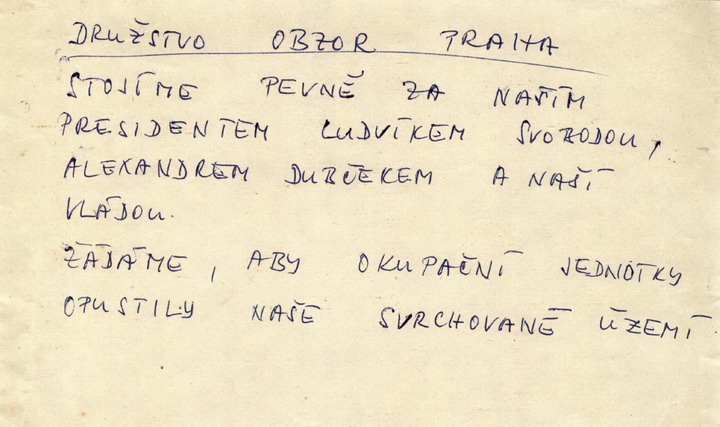 DRUŽSTVO OBZOR PRAHA
STOJÍME PEVNĚ ZA NAŠÍM
PRESIDENTEM LUDVÍKEM SVOBODOU,
ALEXANDREM DUBČEKEM A NAŠÍ
VLÁDOU.
ŽÁDÁME, ABY OKUPAČNÍ JEDNOTKY
OPUSTILY NAŠE SVRCHOVANÉ ÚZEMÍ